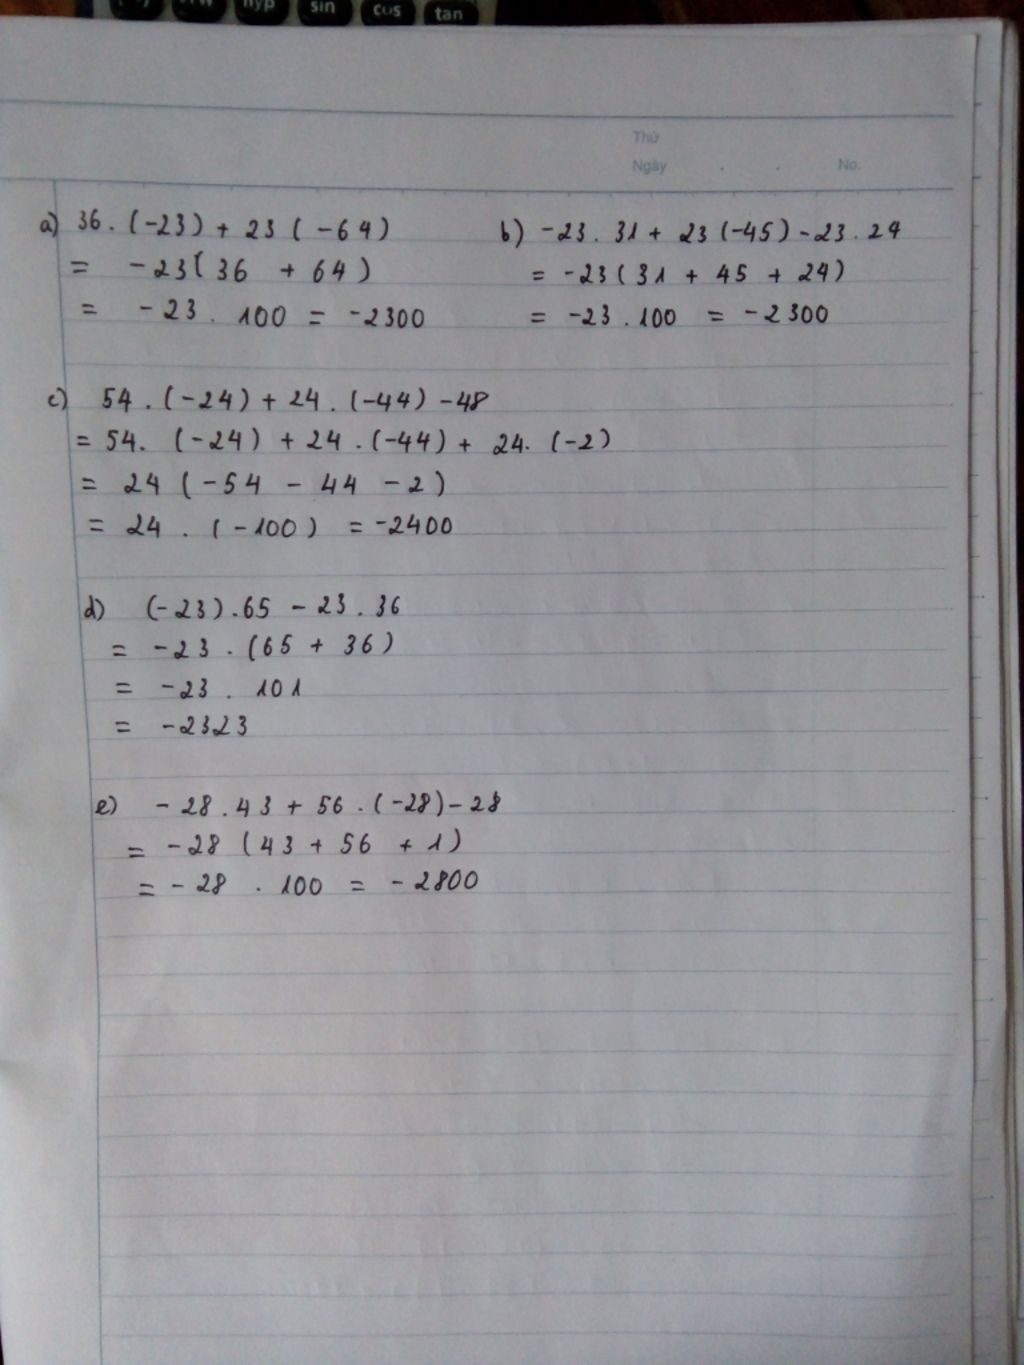 hyp sin cos tan
Thứ
Ngày . . No.
a) 36 . (-23) + 23 ( -64)
= -23( 36 + 64 )
= -23 . 100 = -2300
b) -23 . 31 + 23 (-45) - 23 . 24
= -23 ( 31 + 45 + 24)
= -23 . 100 = -2300
c) 54 . (-24) + 24 . (-44) - 48
= 54 . (-24) + 24 . (-44) + 24 . (-2)
= 24 ( -54 - 44 - 2 )
= 24 . ( -100 ) = -2400
d) (-23) . 65 - 23 . 36
= -23 . (65 + 36 )
= -23 . 101
= -2323
e) -28 . 43 + 56 . (-28) - 28
= -28 ( 43 + 56 + 1 )
= -28 . 100 = -2800